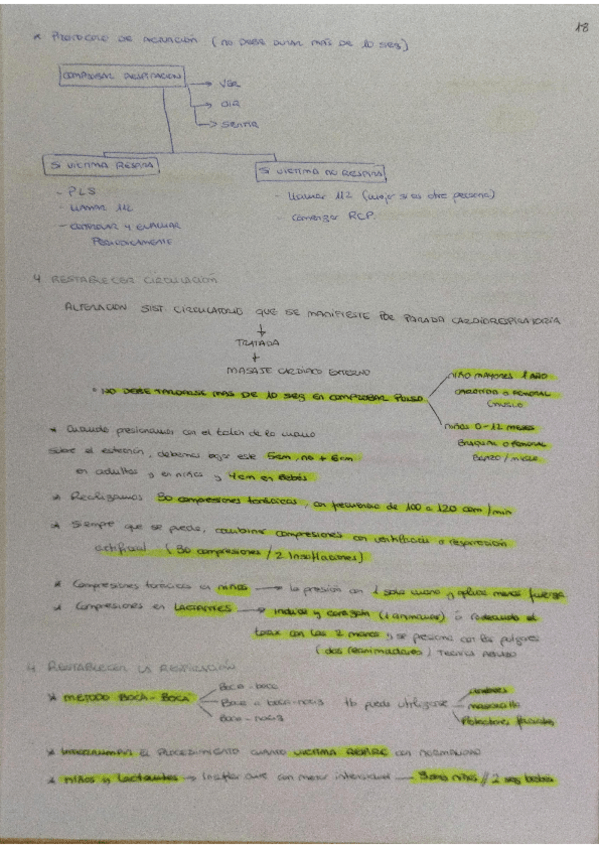 18
* PROTOCOLO DE ACTUACIÓN (NO DEBE DURAR MÁS DE 10 seg)
COMPROBAR RESPIRACION
→ VER
→ OIR
→ SENTIR
SI VICTIMA RESPIRA
- PLS
- LLAMAR 112
- CONTROLAR Y EVALUAR
PERIODICAMENTE
SI VICTIMA NO RESPIRA
- Llamar 112 (mejor si es otra persona)
- Comenzar RCP.
4 RESTABLECER CIRCULACIÓN
ALTERACION SIST. CIRCULATORIO QUE SE MANIFIESTE POR PARADA CARDIORESPIRATORIA
TRATADA
MASAJE CARDIACO EXTERNO
* NO DEBE TARDARSE MAS DE 10 seg EN COMPROBAR PULSO
NIÑO MAYORES 1 AÑO
CAROTIDA O FEMORAL
(MUSLO)
NIÑOS 0-12 MESES
BRAQUIAL O FEMORAL
BRAZO / MUSLO
* Cuando presionamos con el talon de la mano
sobre el esternón, debemos bajar este 5cm, no + 6cm
en adultos y en niños y 4cm en bebés
* Realizamos 30 compresiones torácicas, con frecuencia de 100 a 120 com/min
* Siempre que se pueda, combinar compresiones con ventilación o respiración
artificial (30 compresiones / 2 insuflaciones)
* Compresiones torácicas en niños → la presión con 1 sola mano y aplica menos fuerza
* Compresiones en LACTANTES → indice y corazón (1 animador) ó rodeando el
torax con las 2 manos y se presiona con los pulgares
(dos reanimadores)
4 RESTABLECER LA RESPIRACIÓN
* METODO BOCA-BOCA
Boca-boca
Boca a boca-nariz
Boca-nariz
Tb puede utilizarse
mascarilla
Protectores faciales
* INTERRUMPIR EL PROCEDIMIENTO CUANDO VICTIMA RESPIRE CON NORMALIDAD
* Niños y Lactantes → Insuflar aire con menor intensidad